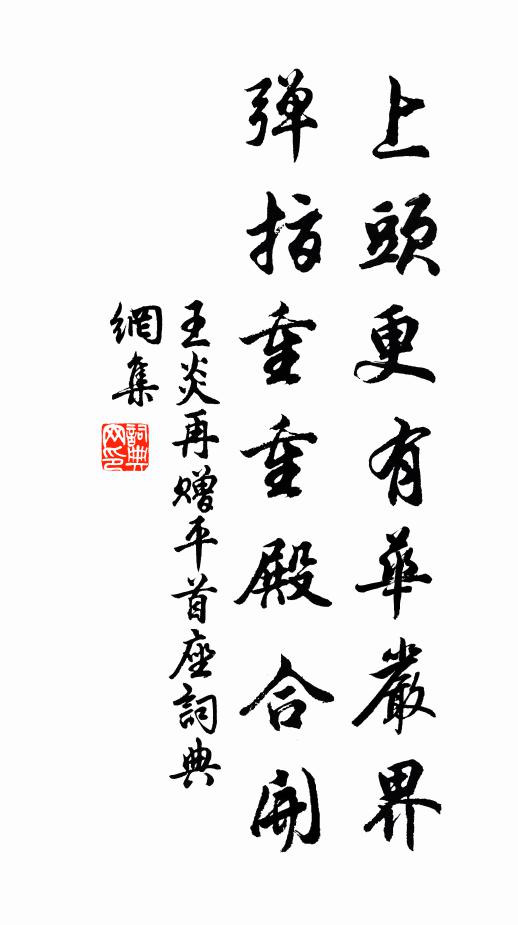 上頭更有華嚴界
弹指重重殿合開
王炎再赠平首座詞典
網集
詞典
网印